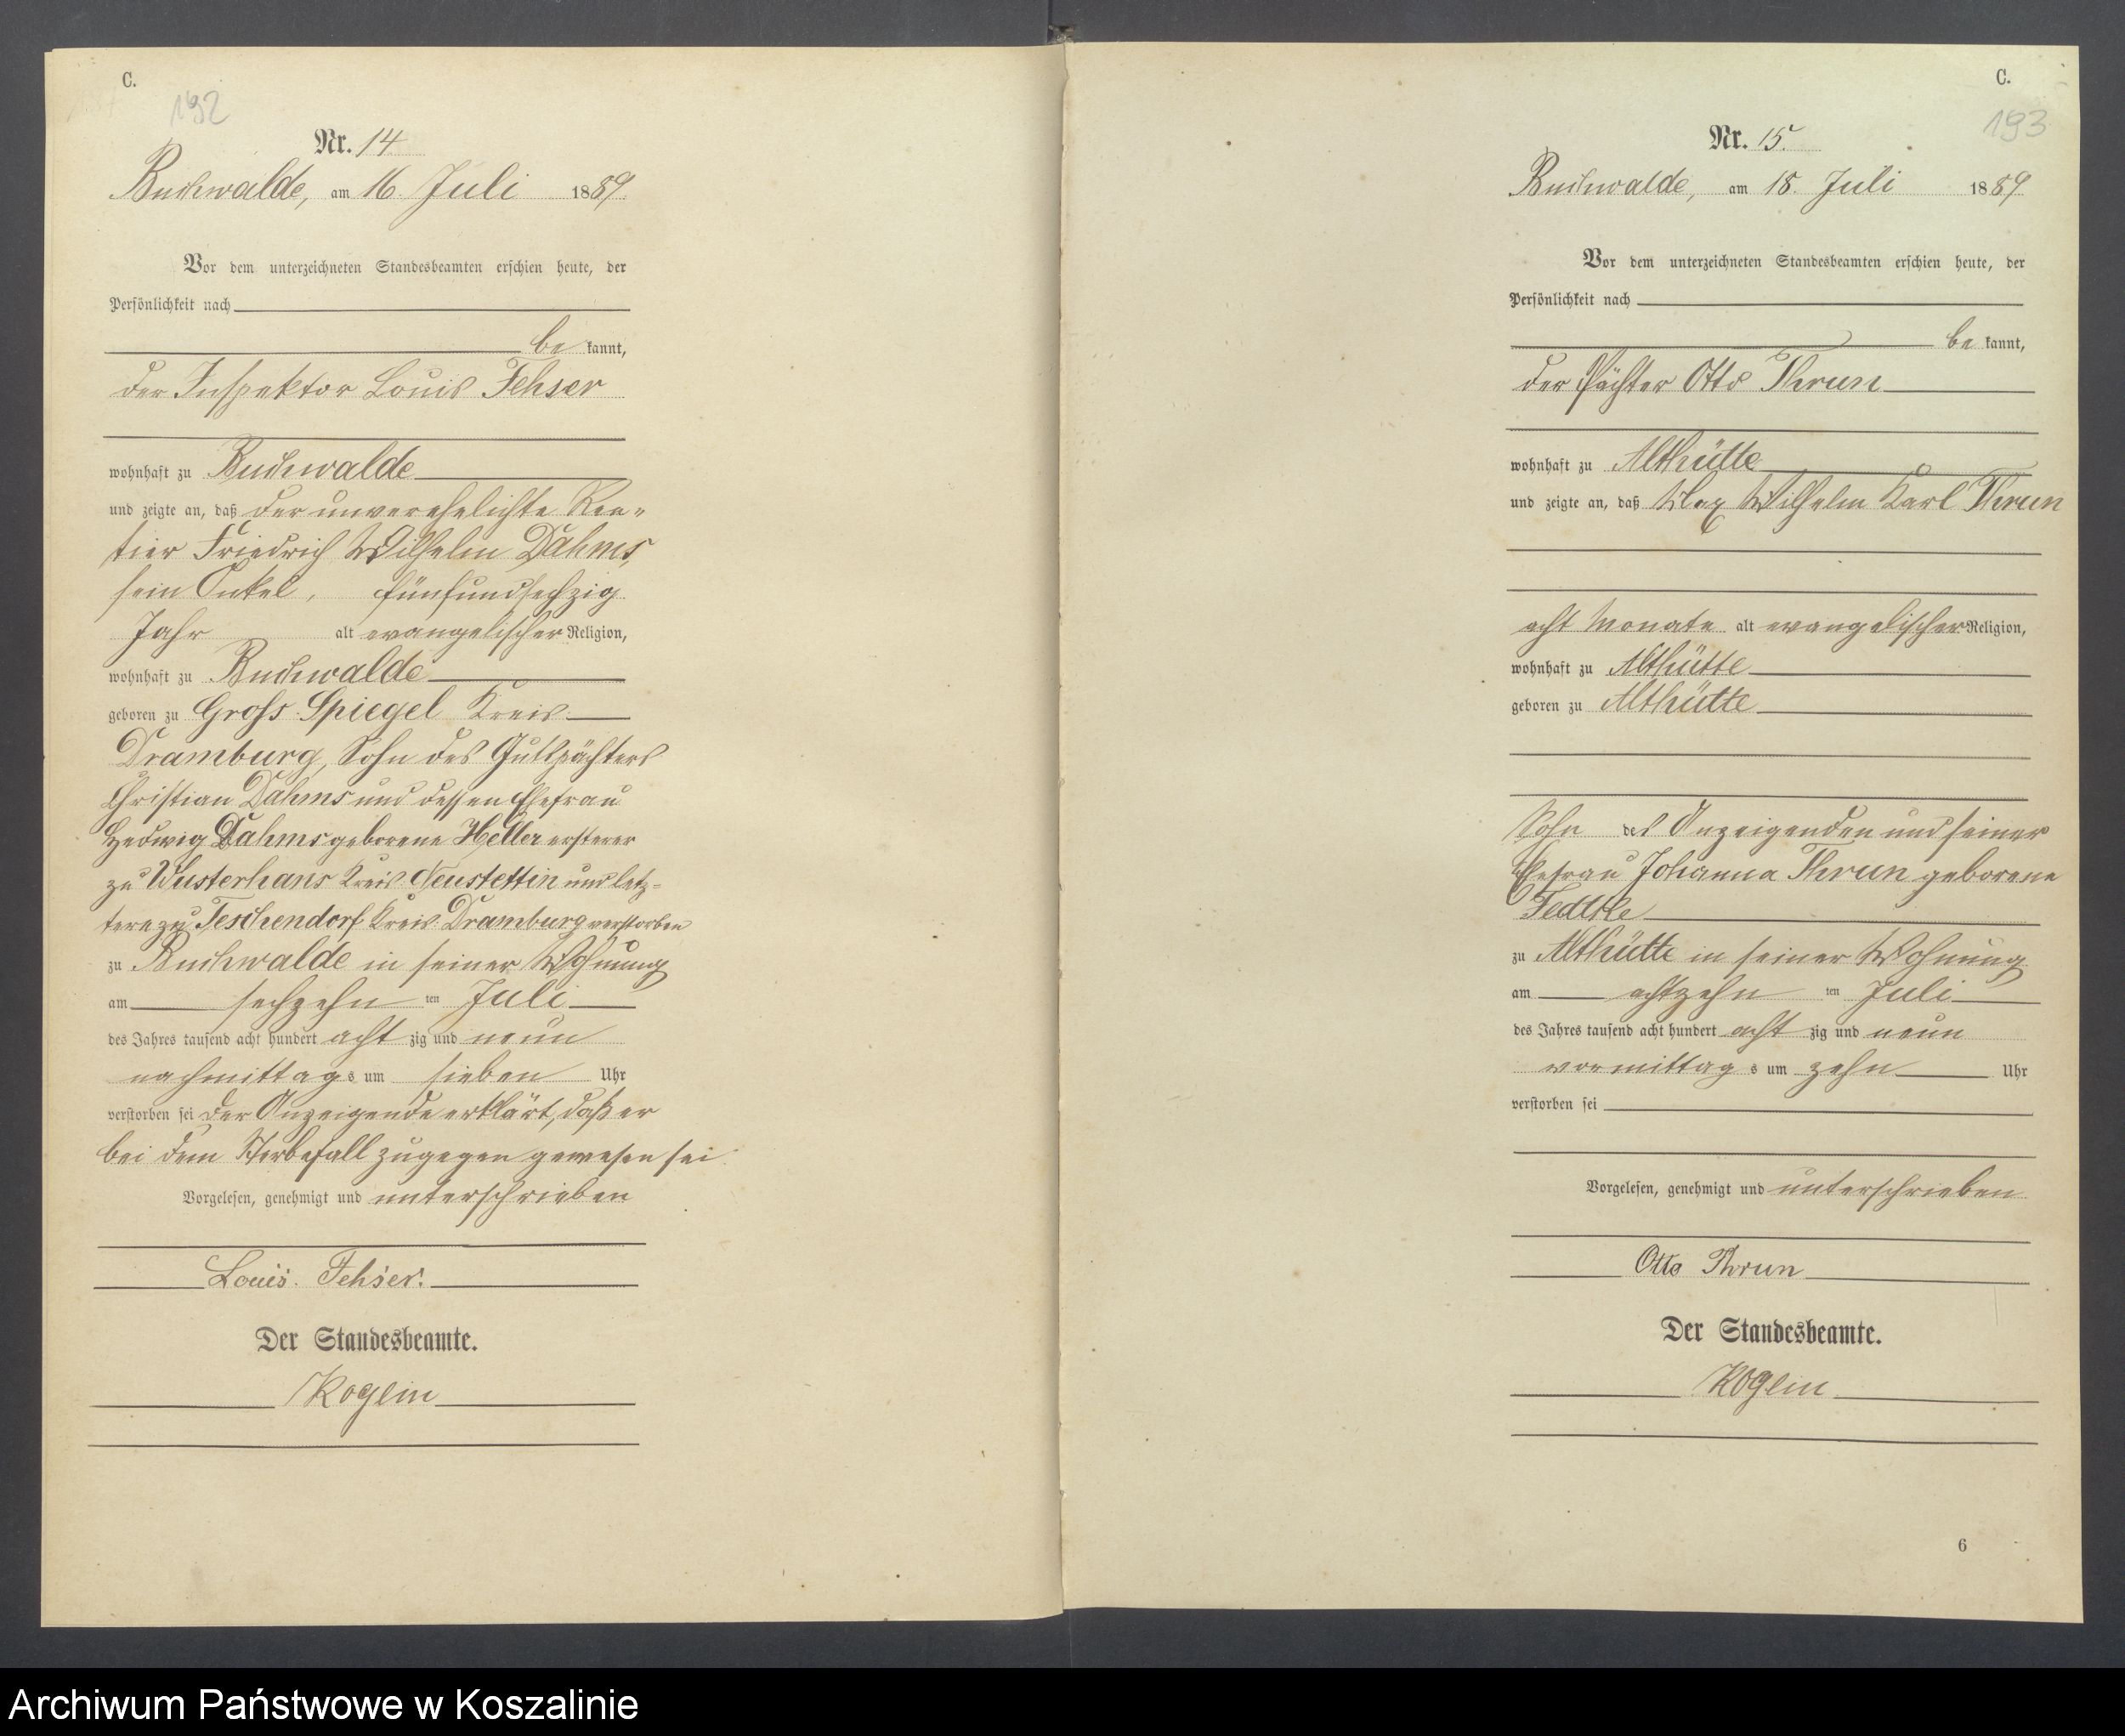 C.
192
Nr. 14
Buchwalde, am 16. Juli 1889.
Vor dem unterzeichneten Standesbeamten erschien heute, der
Persönlichkeit nach
be kannt,
der Inspektor Louis Fehser
wohnhaft zu Buchwalde
und zeigte an, daß der unverehelichte Ren-
tier Friedrich Wilhelm Dahms,
sein Onkel, fünfundsechzig
Jahr alt evangelischer Religion,
wohnhaft zu Buchwalde
geboren zu Gross-Spiegel Kreis
Dramburg, Sohn des Gutspächters
Christian Dahms und dessen Ehefrau
Hedwig Dahms geborene Heller ersterer
zu Wusterhans Kreis Neustettin und letz-
tere zu Teschendorf Kreis Dramburg verstorben
zu Buchwalde in seiner Wohnung
am sechzehn ten Juli
des Jahres tausend acht hundert acht zig und neun
nachmittag s um sieben Uhr
verstorben sei der Anzeigende erklärt, daß er
bei dem Sterbefall zugegen gewesen sei.
Vorgelesen, genehmigt und unterschrieben
Louis Fehser.
Der Standesbeamte.
Koglin
C.
193
Nr. 15.
Buchwalde, am 18. Juli 1889
Vor dem unterzeichneten Standesbeamten erschien heute, der
Persönlichkeit nach
be kannt,
der Pächter Otto Thrun
wohnhaft zu Althütte
und zeigte an, daß Max Wilhelm Karl Thrun
acht Monate alt evangelischer Religion,
wohnhaft zu Althütte
geboren zu Althütte
Sohn des Anzeigenden und seiner
Ehefrau Johanna Thrun geborene
Fedtke
zu Althütte in seiner Wohnung
am achtzehn ten Juli
des Jahres tausend acht hundert acht zig und neun
vormittag s um zehn Uhr
verstorben sei
Vorgelesen, genehmigt und unterschrieben
Otto Thrun
Der Standesbeamte.
Koglin
6
Archiwum Państwowe w Koszalinie